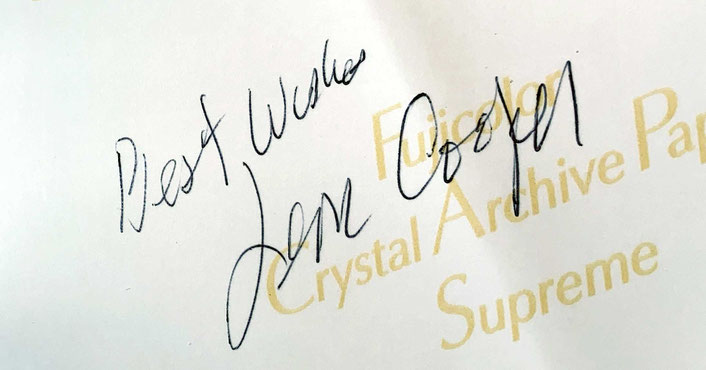 Best Wishes
Leon Cooper
Fujicolor
Crystal Archive Pap
Supreme